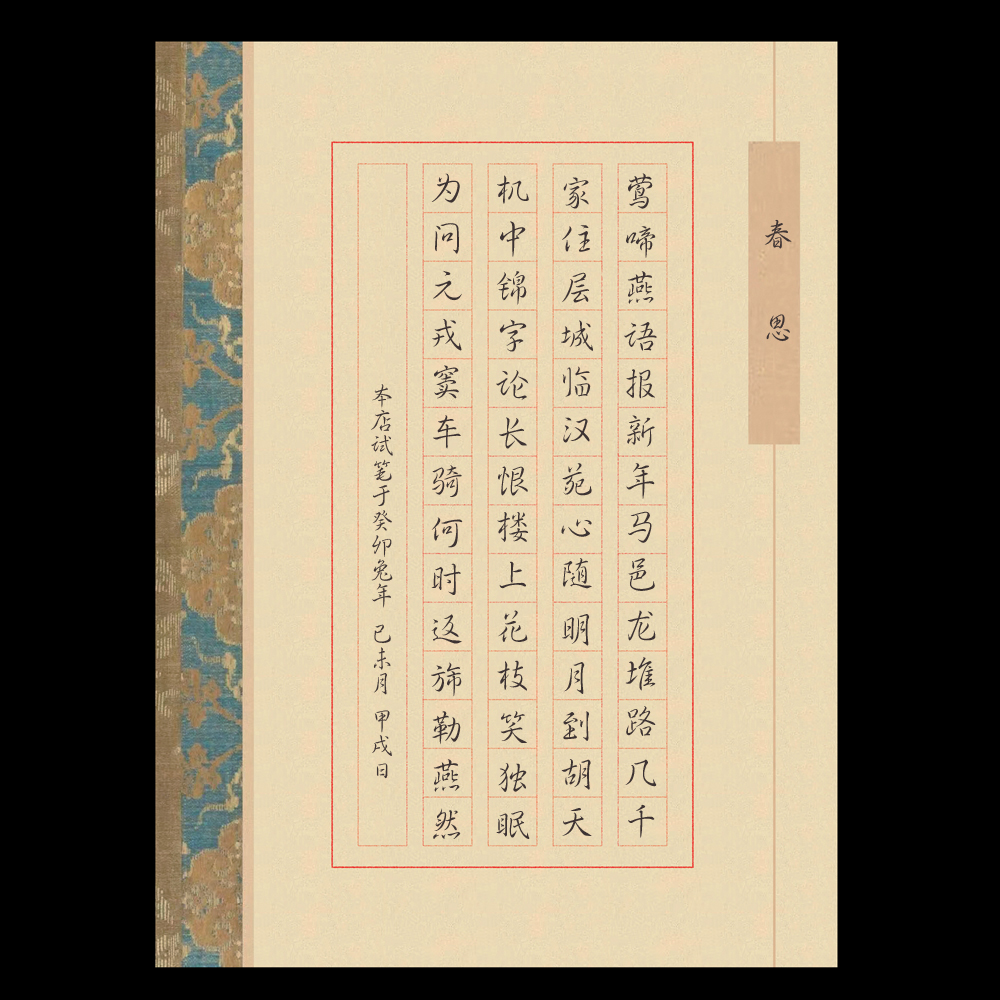 春思
莺啼燕语报新年马邑龙堆路几千
家住层城临汉苑心随明月到胡天
机中锦字论长恨楼上花枝笑独眠
为问元戎窦车骑何时返旆勒燕然
本店试笔于癸卯兔年 己未月 甲戌日